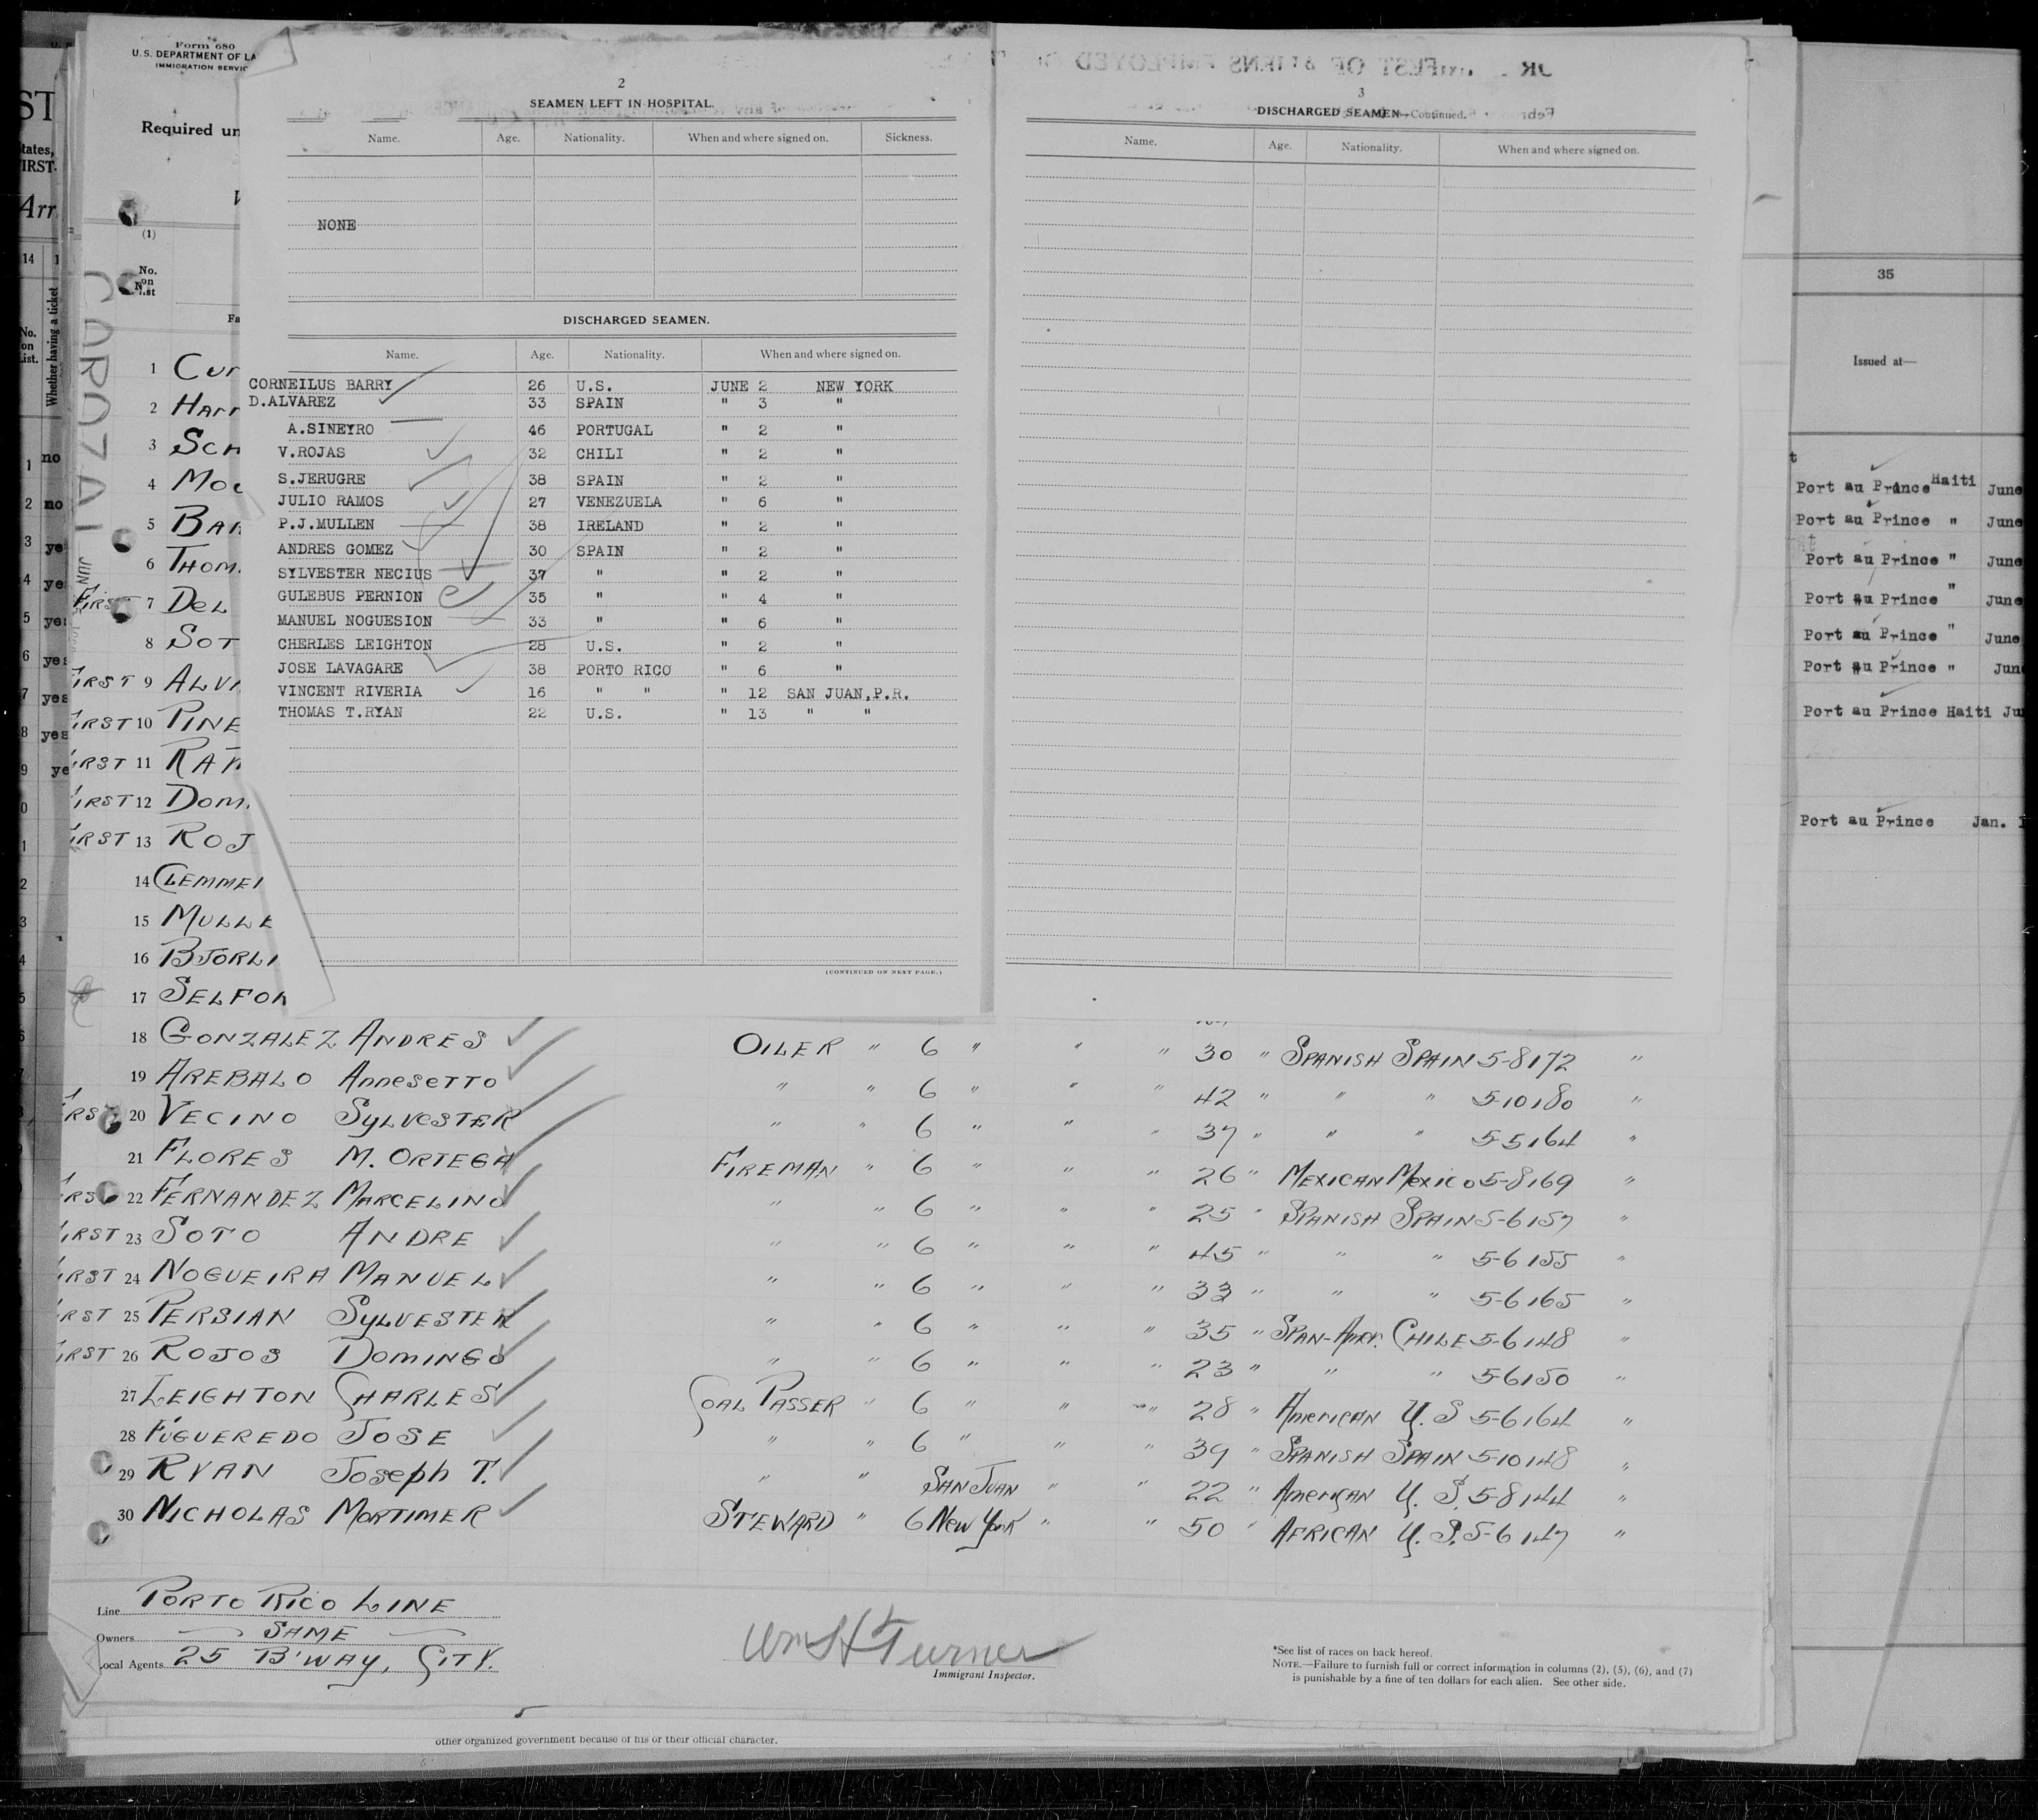 Form 680
U.S. DEPARTMENT OF LA
IMMIGRATION SERVIC
Required un
(1)
No. on list
Fa
COROZAL JUN
ST
tates,
IRST-
Arr
14
No. on List.
Whether having a ticket
1 no
2 no
3 ye
4 ye
5 yes
6 yes
7 yes
8 yes
9 ye
2
SEAMEN LEFT IN HOSPITAL.
Name. Age. Nationality. When and where signed on. Sickness.
NONE
DISCHARGED SEAMEN.
Name. Age. Nationality. When and where signed on.
CORNEILUS BARRY 26 U.S. JUNE 2 NEW YORK
D.ALVAREZ 33 SPAIN " 3 "
A.SINEYRO 46 PORTUGAL " 2 "
V.ROJAS 32 CHILI " 2 "
S.JERUGRE 38 SPAIN " 2 "
JULIO RAMOS 27 VENEZUELA " 6 "
P.J.MULLEN 38 IRELAND " 2 "
ANDRES GOMEZ 30 SPAIN " 2 "
SYLVESTER NECIUS 37 " " 2 "
GULEBUS PERNION 35 " " 4 "
MANUEL NOGUESION 33 " " 6 "
CHERLES LEIGHTON 28 U.S. " 2 "
JOSE LAVAGARE 38 PORTO RICO " 6 "
VINCENT RIVERIA 16 " " " 12 SAN JUAN,P.R.
THOMAS T.RYAN 22 U.S. " 13 " "
(CONTINUED ON NEXT PAGE.)
3
DISCHARGED SEAMEN—Continued.
Name. Age. Nationality. When and where signed on.
35
Issued at—
Port au Prince Haiti June
Port au Prince " June
Port au Prince " June
Port au Prince " June
Port au Prince " June
Port au Prince " Jun
Port au Prince Haiti Ju
Port au Prince Jan. 1
1 CUR
2 HARR
3 SCH
4 MO
5 BAR
6 THOM
FIRST 7 DEL
8 SOT
FIRST 9 ALVA
FIRST 10 PINE
FIRST 11 RAM
FIRST 12 DOM
FIRST 13 ROJ
14 CLEMME
15 MULLE
16 BJORLI
17 SELFOR
18 GONZALEZ ANDRES OILER " 6 " " " 30 " SPANISH SPAIN 5-8 172 "
19 AREBALO ANNESETTO " " 6 " " " 42 " " " 5-10 180 "
FIRST 20 VECINO SYLVESTER " " 6 " " " 37 " " " 5-5 164 "
21 FLORES M. ORTEGA FIREMAN " 6 " " " 26 " MEXICAN MEXICO 5-8 169 "
FIRST 22 FERNANDEZ MARCELINO " " 6 " " " 25 " SPANISH SPAIN 5-6 157 "
FIRST 23 SOTO ANDRE " " 6 " " " 45 " " " 5-6 155 "
FIRST 24 NOGUEIRA MANUEL " " 6 " " " 33 " " " 5-6 165 "
FIRST 25 PERSIAN SYLVESTER " " 6 " " " 35 " SPAN-AMER. CHILE 5-6 148 "
FIRST 26 ROJOS DOMINGO " " 6 " " " 23 " " " 5-6 150 "
27 LEIGHTON CHARLES COAL PASSER " 6 " " " 28 " AMERICAN U.S 5-6 164 "
28 FIGUEREDO JOSE " " 6 " " " 39 " SPANISH SPAIN 5-10 148 "
29 RYAN JOSEPH T. " " SAN JUAN " " 22 " AMERICAN U.S. 5-8 144 "
30 NICHOLAS MORTIMER STEWARD " 6 NEW YORK " " 50 " AFRICAN U.S. 5-6 147 "
Line PORTO RICO LINE
Owners SAME
Local Agents 25 B'WAY, CITY.
Wm H Turner
Immigrant Inspector.
*See list of races on back hereof.
NOTE.—Failure to furnish full or correct information in columns (2), (5), (6), and (7)
is punishable by a fine of ten dollars for each alien. See other side.
other organized government because of his or their official character.